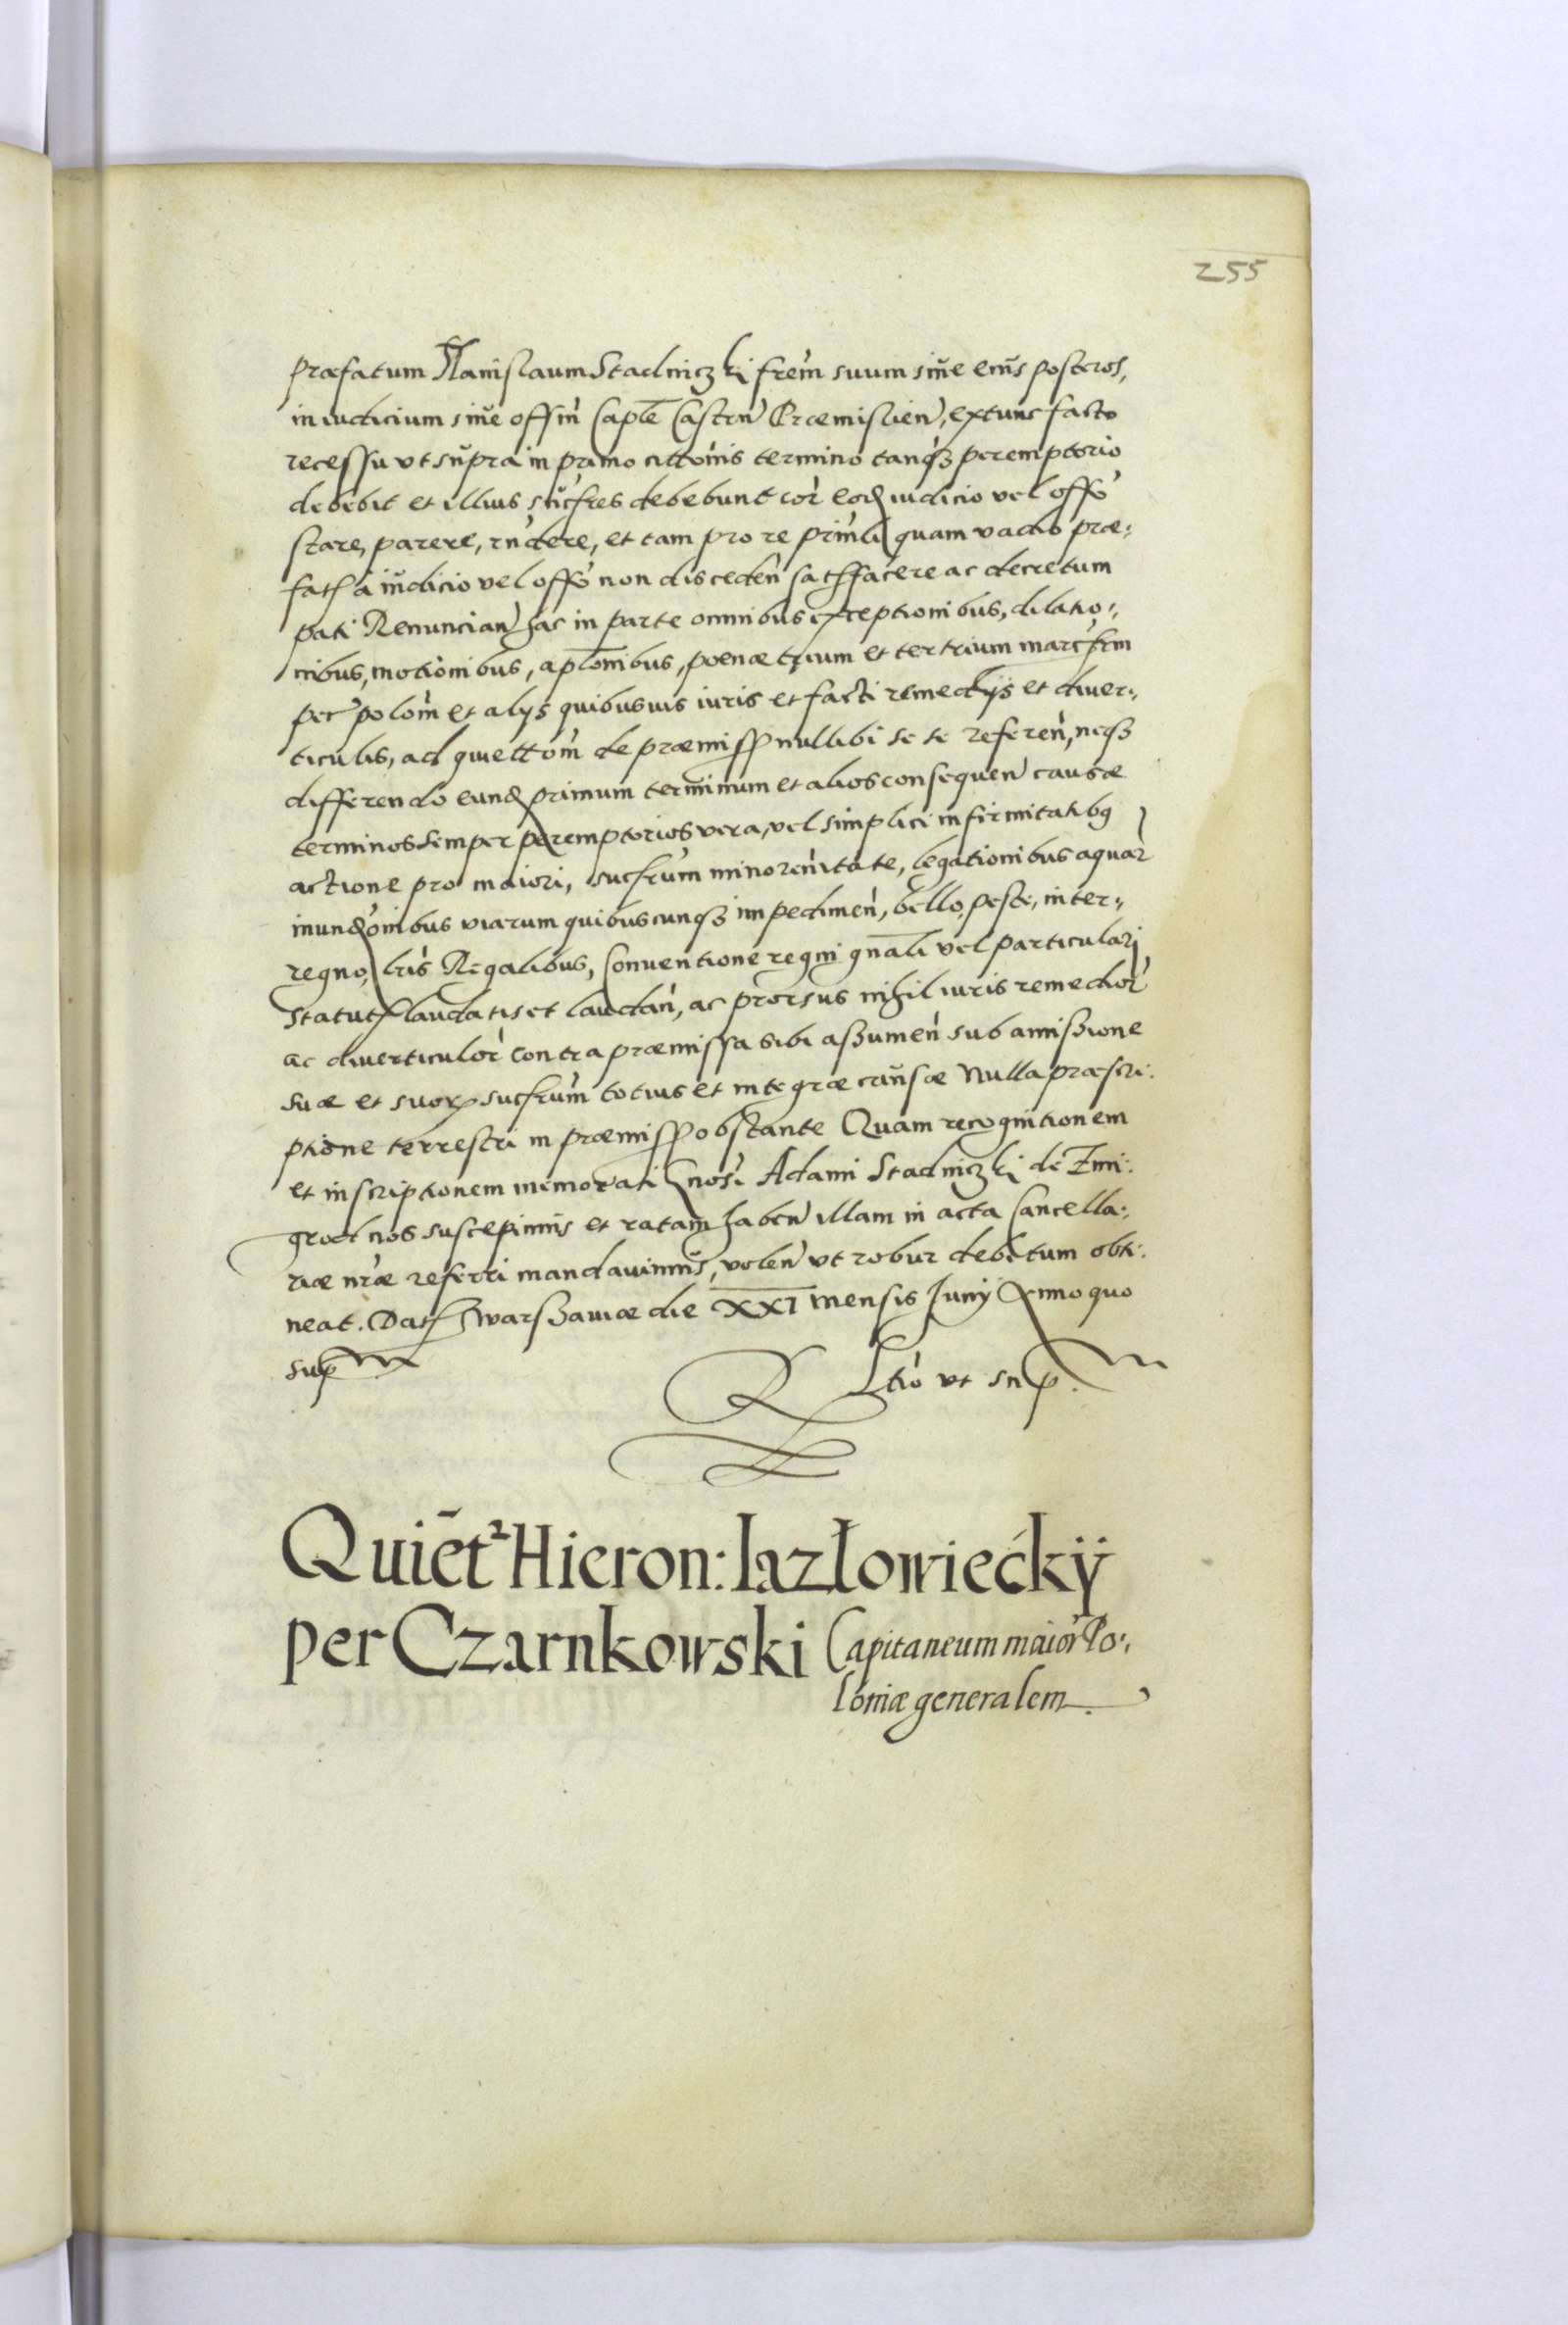 255
præfatum Stanislaum Stadniczki frem̃ suum siũe eiũs posteros,
in iudicium siũe offiñ Caplẽ Castreñ Præmislieñ, extunc facto
recessu vt sũpra in primo cittõnis termino tanqȝ peremptorio
debebit et illius sũcfres debebunt cor̃ eoð iudicio vel offõ
stare, parere, rñdere, et tam pro re prinĩli quam vadio præ-
fat̃ a iũdicio vel offõ non discedeñ satisfacere ac decretum
pati Renuncian̄ hac in parte omnibus exceptionibus, dilatio-
nibus, motionibus, aplõnibus, poenæ trium et ter trium marc̃ frm
per polom̃ et alÿs quibusuis iuris et facti remedÿs et diuer-
ticulis, ad quiettom̃ de præmiss̃ nullibi se se refereñ, neqȝ
differendo eunð primum terminum et alios consequeñ causæ
terminos semper peremptorios vera, vel simplici infirmitatibꝫ
actione pro maiori, sucfrum̃ minoreñitate, legationibus aquar̃
inundõnibus viarum quibuscunqȝ impedimeñ, bello, peste, inter-
regno, lris̃ Regalibus, Conuentione regni gnãli vel particulari
Statut̃ laudatis et laudañ, ac prorsus nihil iuris remedior̃
ac diuerticulor̃ contra præmissa sibi assumeñ sub amissione
suæ et suorꝝ sucfrum̃ totius et integræ caũsæ Nulla præscri-
ptione terrestri in præmiss̃ obstante Quam recognitionem
et inscriptionem memorati Gnosĩ Adami Stadniczki de Zmi-
grod nos suscepimus et ratam habeñ illam in acta Cancella-
riæ nræ̃ referri mandauimũs, voleñ vt robur debitum obti-
neat. Dat̃ Warssauiæ die XXI mensis Iunÿ Anno quo
sup̃
Rltiõ vt sup̃.
Quiẽt Hieron: Iazłowiećkÿ
per Czarnkowski Capitaneum maior̃ Po-
loniæ generalem